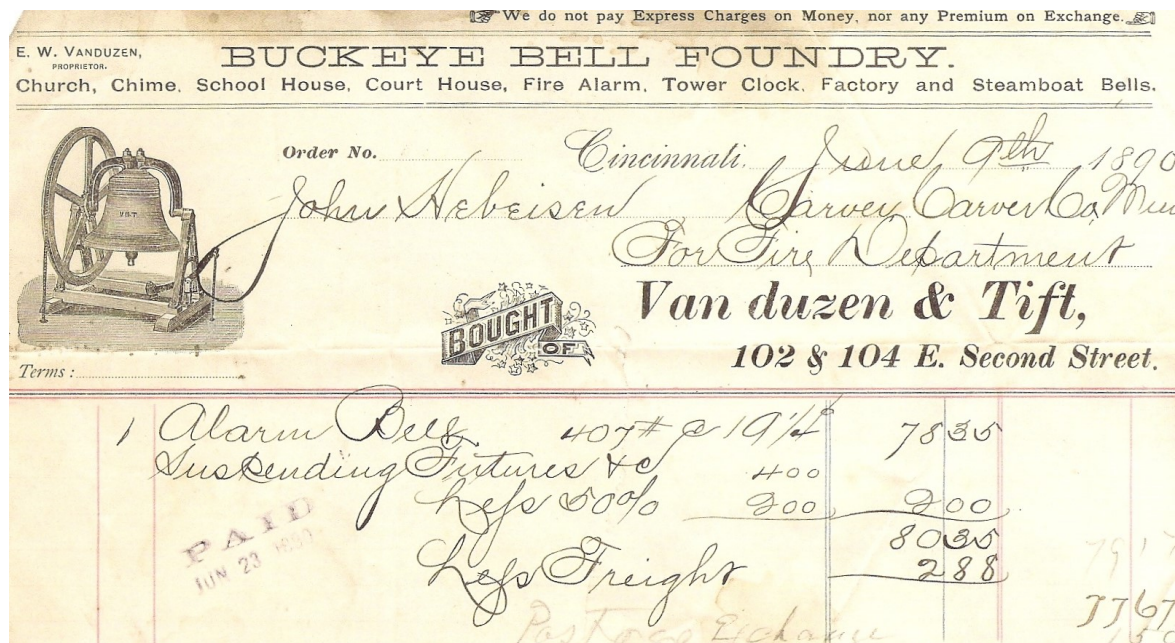 We do not pay Express Charges on Money, nor any Premium on Exchange.
E. W. VANDUZEN,
PROPRIETOR.
BUCKEYE BELL FOUNDRY.
Church, Chime, School House, Court House, Fire Alarm, Tower Clock, Factory and Steamboat Bells.
Order No. Cincinnati. June 9th 1890
John Hebeisen Carver, Carver Co, Min
For Fire Department
V & T
BOUGHT OF
Van duzen & Tift,
102 & 104 E. Second Street.
Terms:
1 Alarm Bell 407# @ 19 1/4 78 35
Suspending Fixtures &c 4 00
Less 50% 2 00 2 00
80 35
Less Freight 2 88
PAID
JUN 23 1890
77 67
Exchange